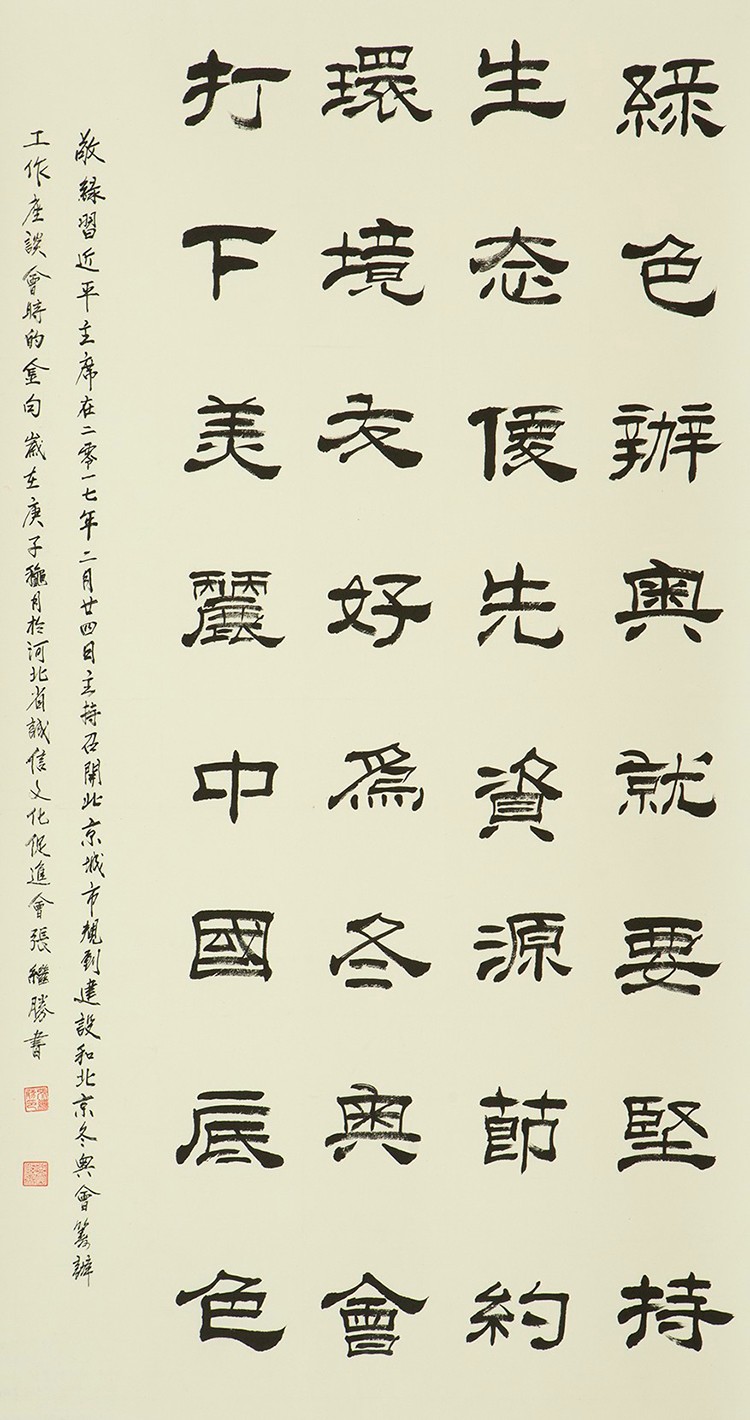 綠色辦奧就要堅持
生态優先資源節約
環境友好為冬奧會
打下美麗中國底色
敬錄習近平主席在二零一七年二月廿四日主持召開北京城市規劃建設和北京冬奧會籌辦
工作座談會時的金句 歲在庚子穐月於河北省誠信文化促進會張繼勝書